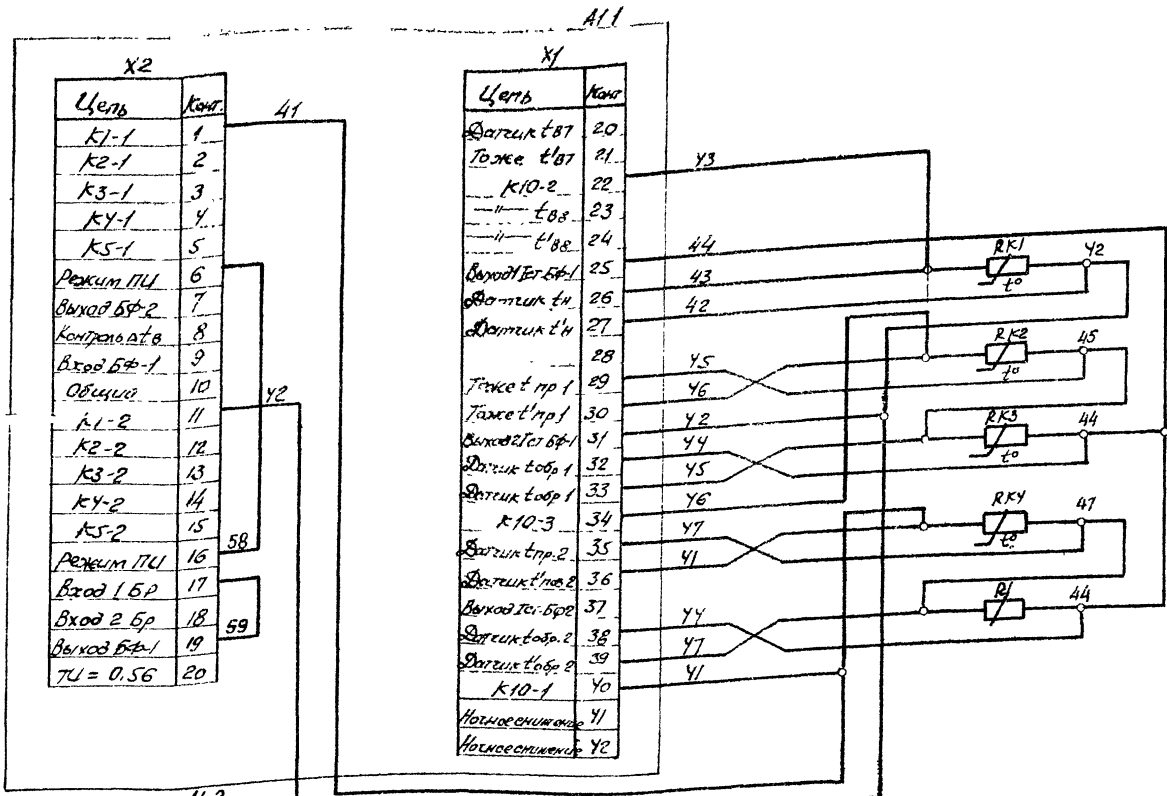 A11
X2
Цепь Конт.
К1-1 1
К2-1 2
К3-1 3
К4-1 4
К5-1 5
Режим ПИ 6
Выход БФ-2 7
Контроль Δt в 8
Вход БФ-1 9
Общий 10
К1-2 11
К2-2 12
К3-2 13
К4-2 14
К5-2 15
Режим ПИ 16
Вход 1 БР 17
Вход 2 БР 18
Выход БФ-1 19
TU = 0.56 20
41
42
58
59
X1
Цепь Конт
Датчик tв7 20
Тоже t'в7 21
К10-2 22
—"— tв8 23
—"— t'в8 24
Выход 1 Iст БФ-1 25
Датчик tн 26
Датчик t'н 27
28
Тоже t пр 1 29
Тоже t' пр 1 30
Выход 2 Iст БФ-1 31
Датчик t обр 1 32
Датчик t обр 1 33
К10-3 34
Датчик t пр.2 35
Датчик t' 2 36
Выход Iст БФ2 37
Датчик t обр.2 38
Датчик t' обр 2 39
К10-1 40
Ночное снижение 41
Ночное снижение 42
43
44
43
42
45
46
42
44
45
46
47
41
44
47
41
RK1
t°
42
RK2
t°
45
RK3
t°
44
RK4
t°
47
R1
44